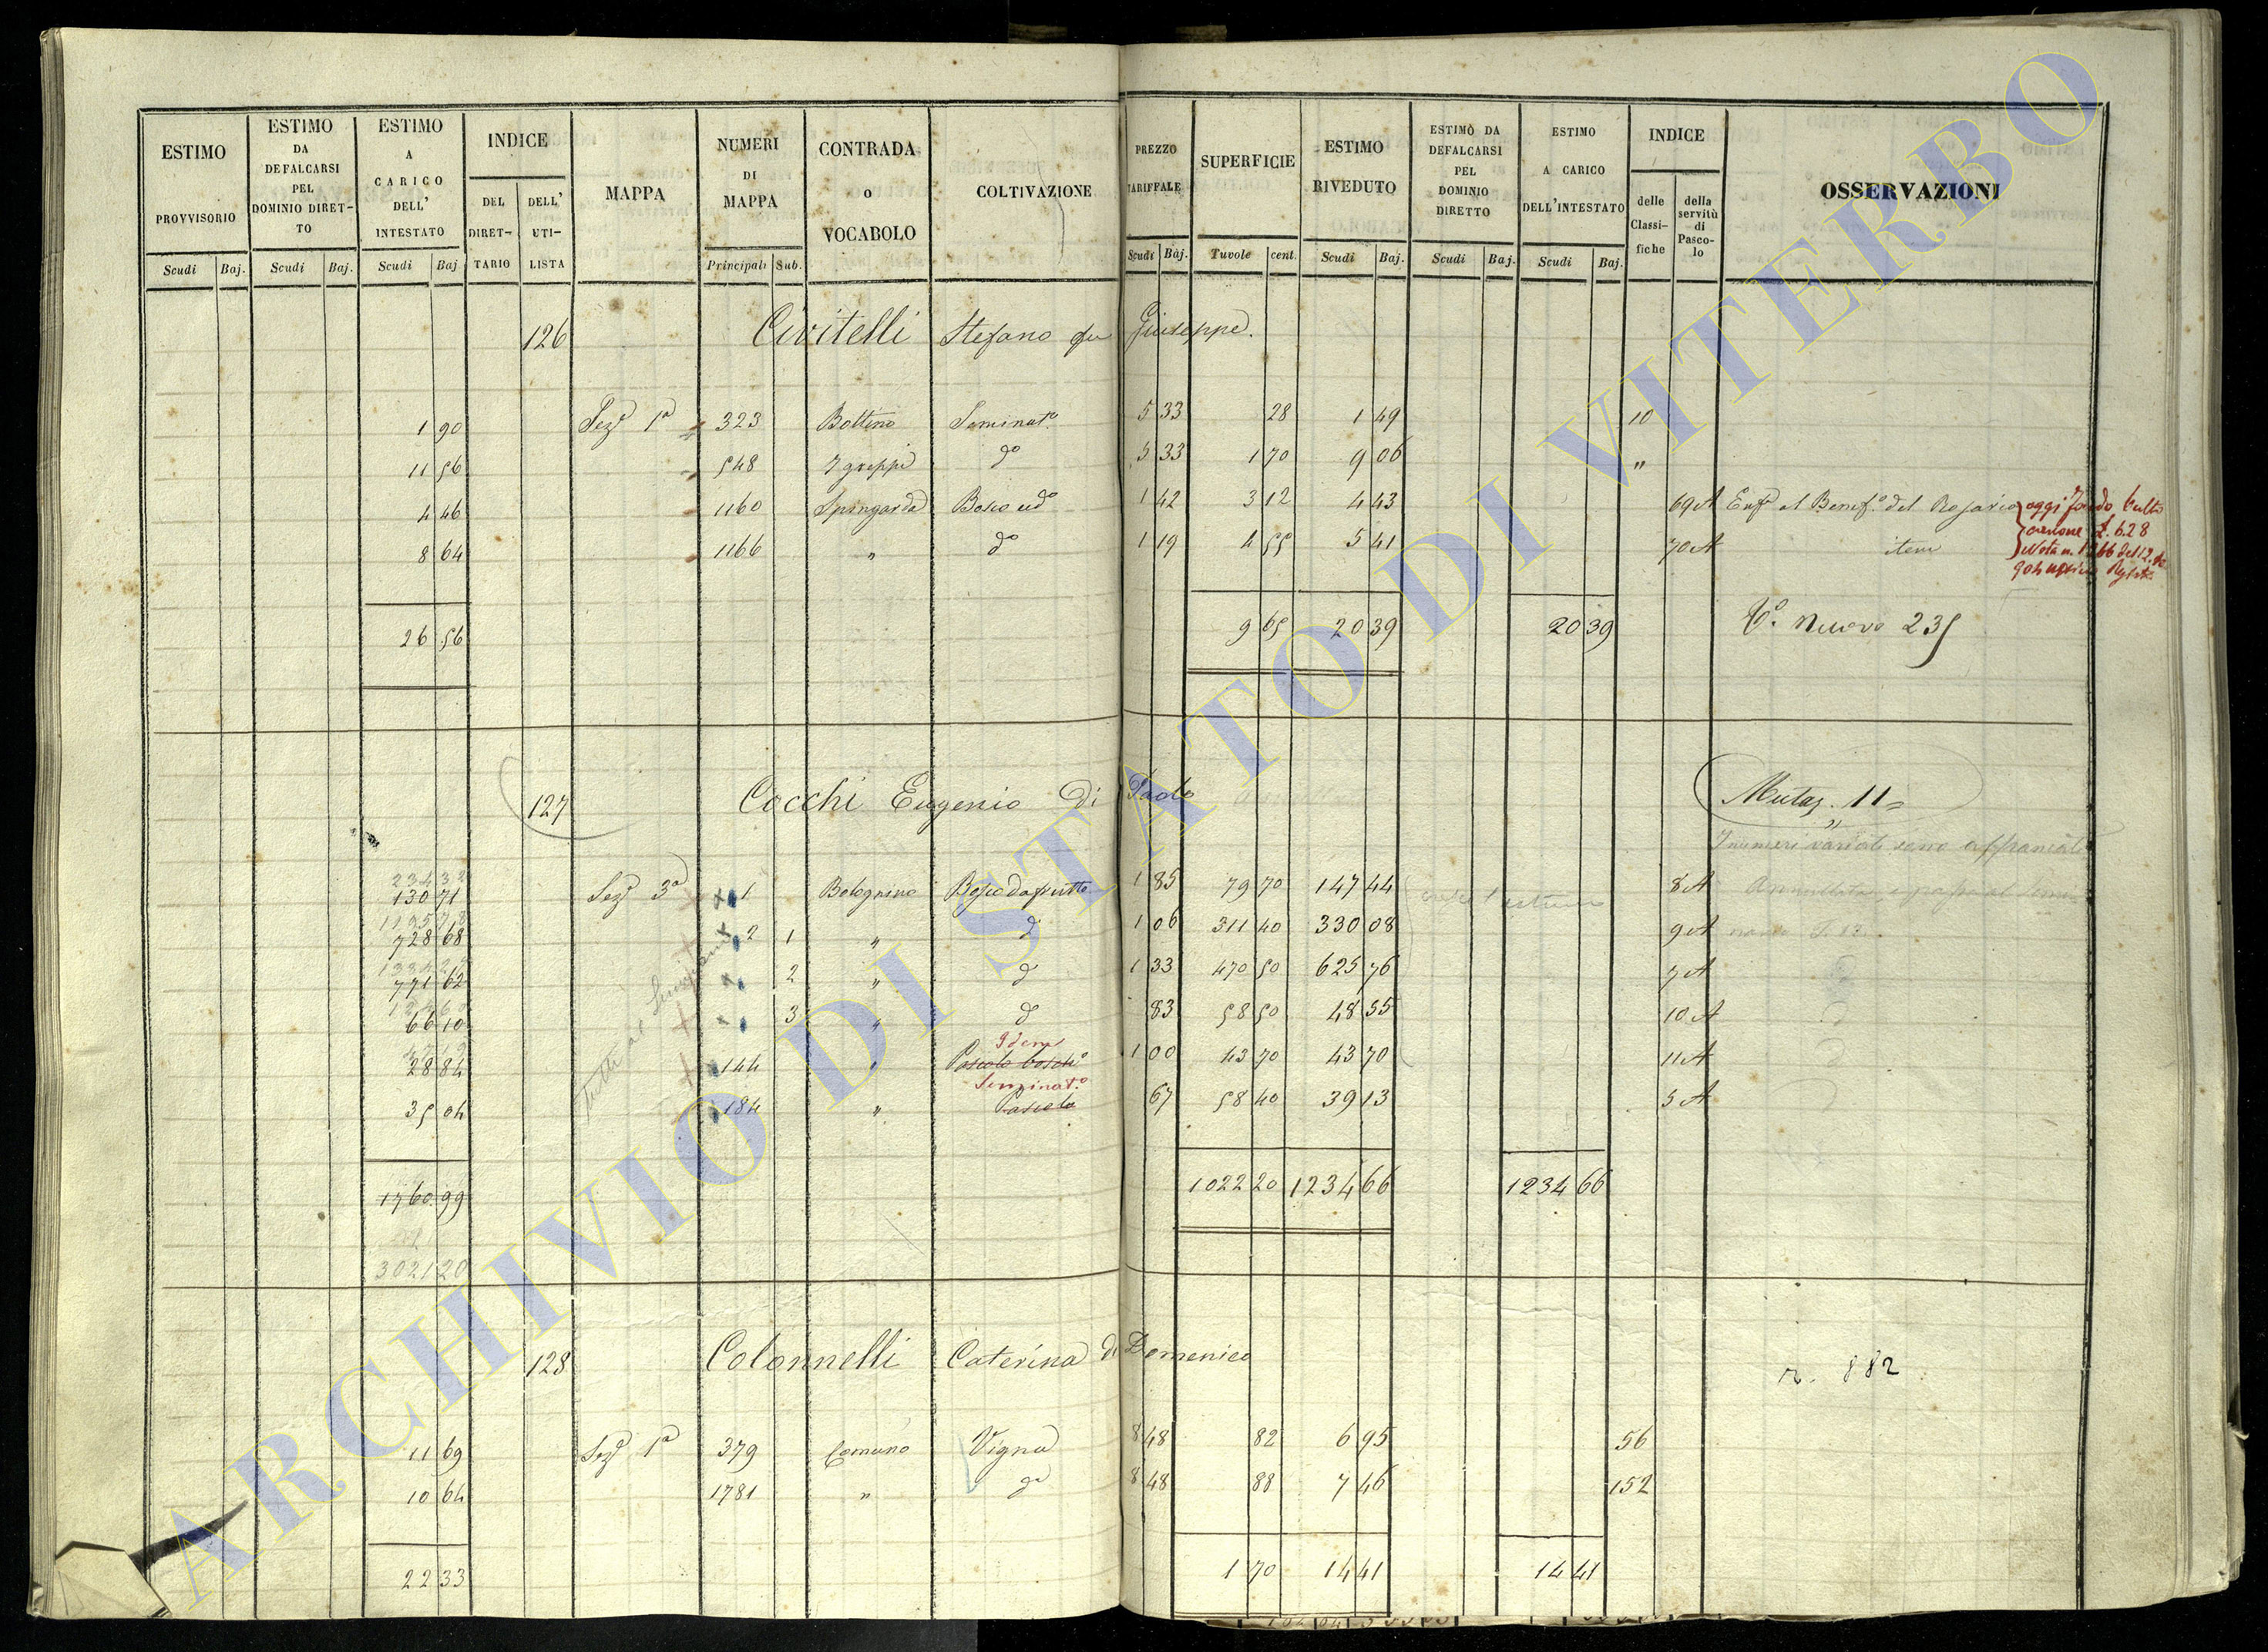 ESTIMO PROVVISORIO Scudi Baj.
ESTIMO DA DEFALCARSI PEL DOMINIO DIRET-TO Scudi Baj.
ESTIMO A CARICO DELL' INTESTATO Scudi Baj
INDICE DEL DIRET-TARIO DELL' UTI-LISTA
MAPPA
NUMERI DI MAPPA Principali Sub.
CONTRADA o VOCABOLO
COLTIVAZIONE
PREZZO TARIFFALE Scudi Baj.
SUPERFICIE Tavole cent.
ESTIMO RIVEDUTO Scudi Baj.
ESTIMO DA DEFALCARSI PEL DOMINIO DIRETTO Scudi Baj.
ESTIMO A CARICO DELL'INTESTATO Scudi Baj.
INDICE delle Classi-fiche della servitù di Pasco-lo
OSSERVAZIONI
126 Civitelli Stefano fu Giuseppe.
1 90 Sez.e 1a 323 Bottino Seminat.o 5 33 28 1 49 10
11 56 548 I greppi do 5 33 1 70 9 06 "
4 46 1160 Spingarda Bosco ced.o 1 42 3 12 4 43 69 A Enf.a al Benef.o del Rosario oggi fondo Culto
8 64 1166 " do 1 19 4 55 5 41 70 A item
26 56 9 65 20 39 20 39 V.o nuovo 235
127 Cocchi Eugenio di Paolo Mutaz. 11
I numeri variati sono
234 32
130 71 Sez.e 3a 1 Bolognino Bosco da frutto 1 85 79 70 147 44 8 A
728 68 2 1 " do 1 06 311 40 330 08 9 A
771 62 2 " do 1 33 470 50 625 76 7 A
66 10 3 " do 83 58 50 48 55 10 A
Idem
28 84 144 " Pascolo bosch.o 1 00 43 70 43 70 11 A
Seminat.o
35 04 184 " Pascolo 67 58 40 39 13 5 A
1760 99 1022 20 1234 66 1234 66
3021 20
128 Colonnelli Caterina di Domenico n. 882
11 69 Sez.e 1a 379 Comuno Vigna 8 48 82 6 95 56
10 64 1781 " do 8 48 88 7 46 152
22 33 1 70 14 41 14 41
ARCHIVIO DI STATO DI VITERBO